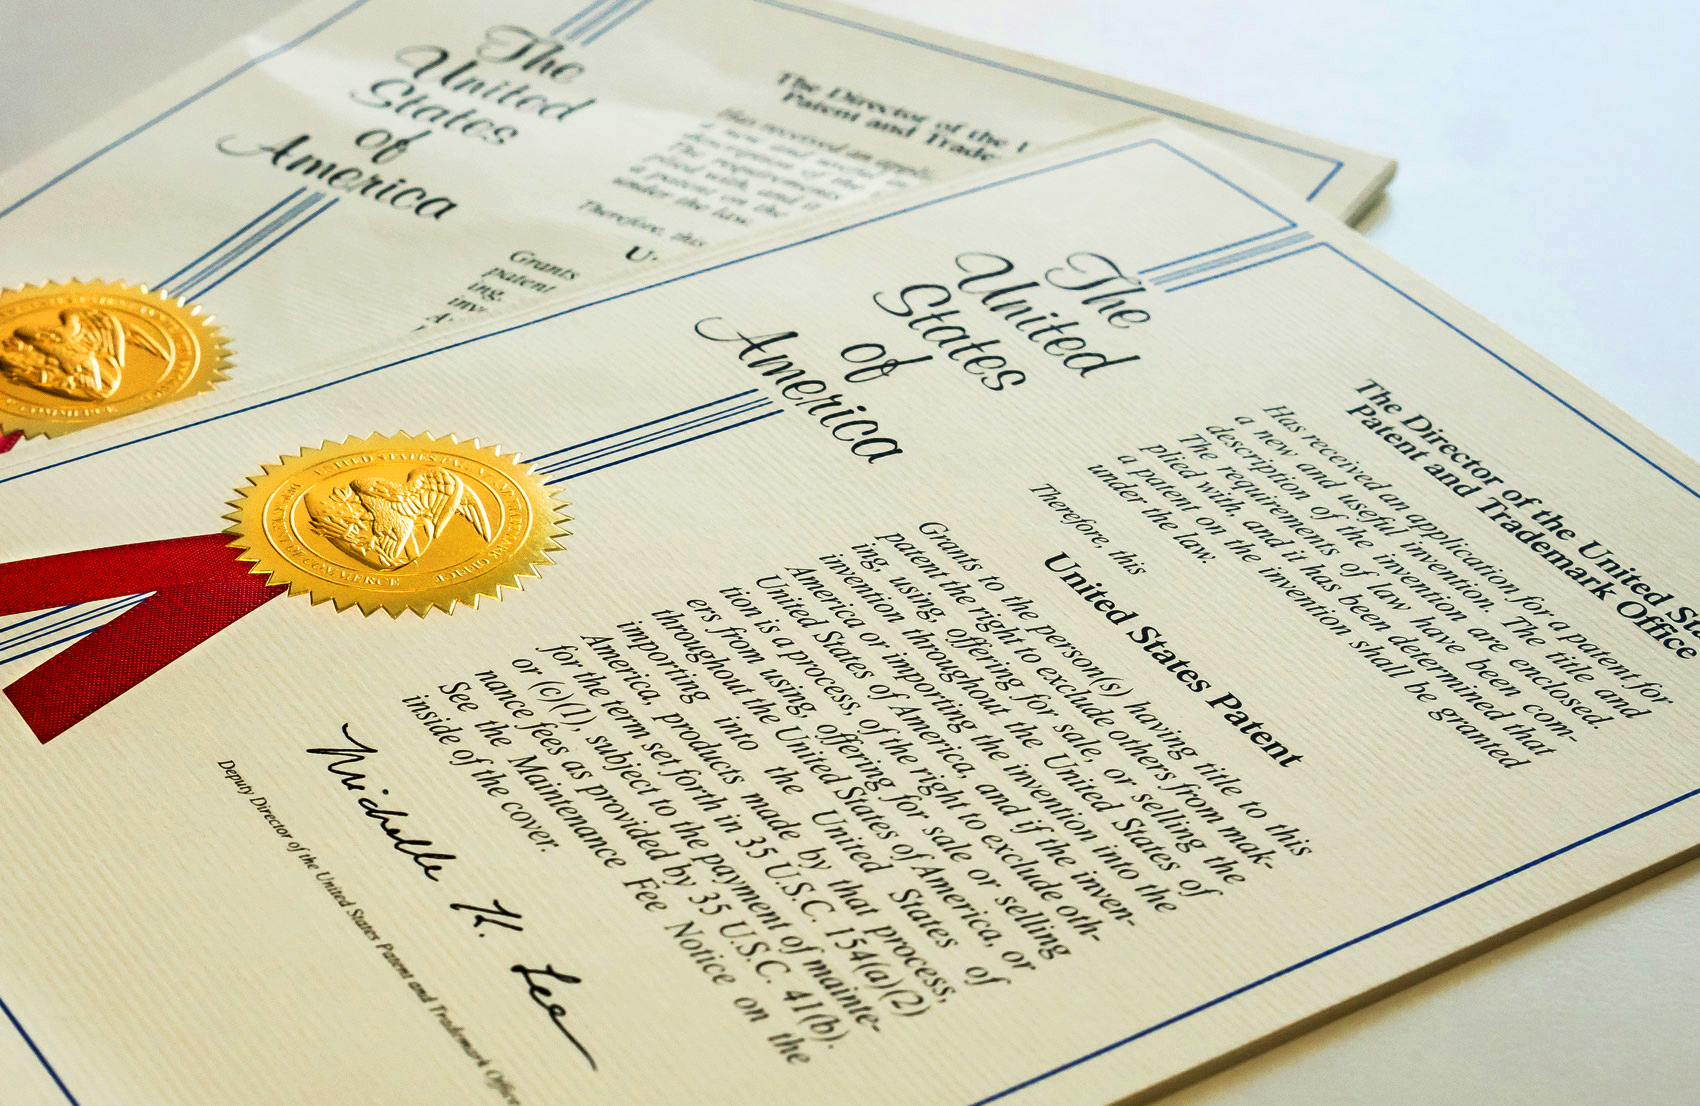 The
United
States
of
America
The Director of the
Patent and Trade
Has received an applic
a new and useful in
description of the
The requirements
plied with, and it
a patent on the
under the law.
Therefore, this
Grants
patent
ing,
inv
The
United
States
of
America
The Director of the United Sta
Patent and Trademark Office
Has received an application for a patent for
a new and useful invention. The title and
description of the invention are enclosed.
The requirements of law have been com-
plied with, and it has been determined that
a patent on the invention shall be granted
under the law.
Therefore, this
United States Patent
Grants to the person(s) having title to this
patent the right to exclude others from mak-
ing, using, offering for sale, or selling the
invention throughout the United States of
America or importing the invention into the
United States of America, and if the inven-
tion is a process, of the right to exclude oth-
ers from using, offering for sale or selling
throughout the United States of America, or
importing into the United States of
America, products made by that process,
for the term set forth in 35 U.S.C. 154(a)(2)
or (c)(1), subject to the payment of mainte-
nance fees as provided by 35 U.S.C. 41(b).
See the Maintenance Fee Notice on the
inside of the cover.
Michelle K. Lee
Deputy Director of the United States Patent and Trademark Office
UNITED STATES PATENT
OFFICE
OF COMMERCE
COMMERCE